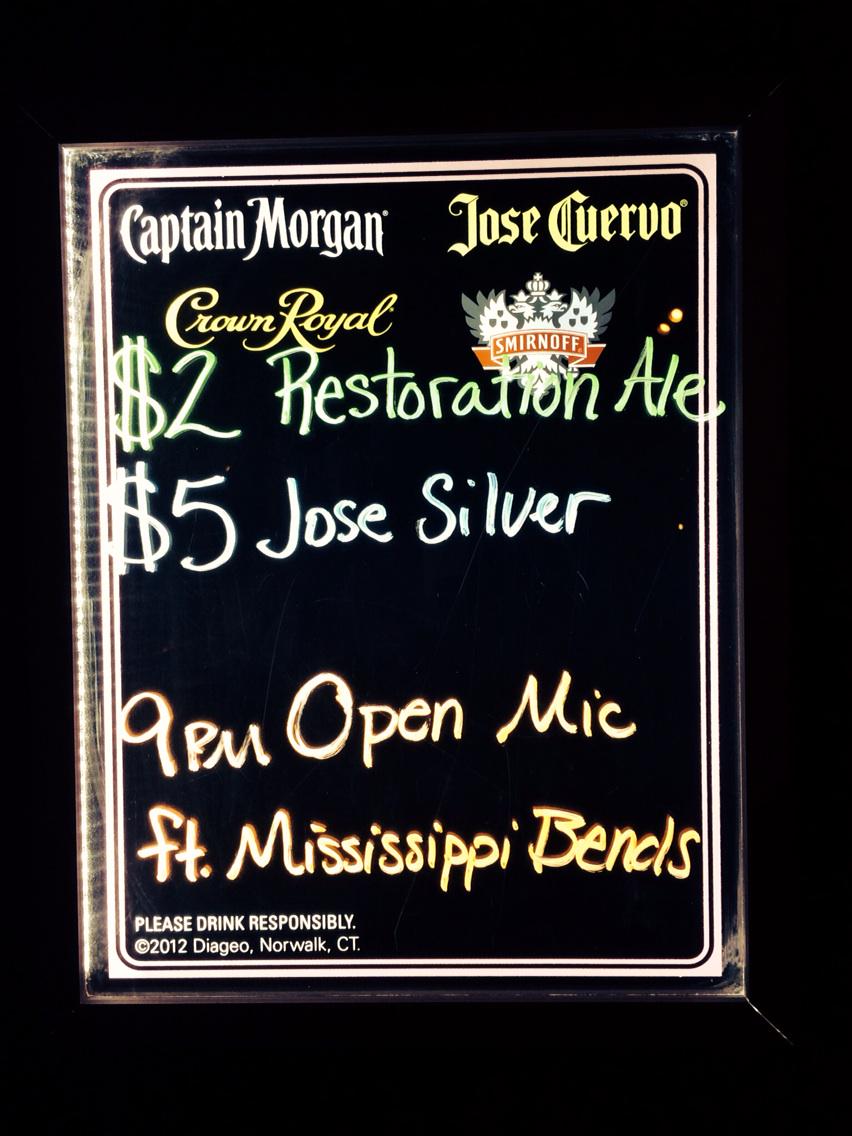 Captain Morgan® Jose Cuervo®
Crown Royal® SMIRNOFF®
$2 Restoration Ale
$5 Jose Silver
9PM Open Mic
ft. Mississippi Bends
PLEASE DRINK RESPONSIBLY.
©2012 Diageo, Norwalk, CT.